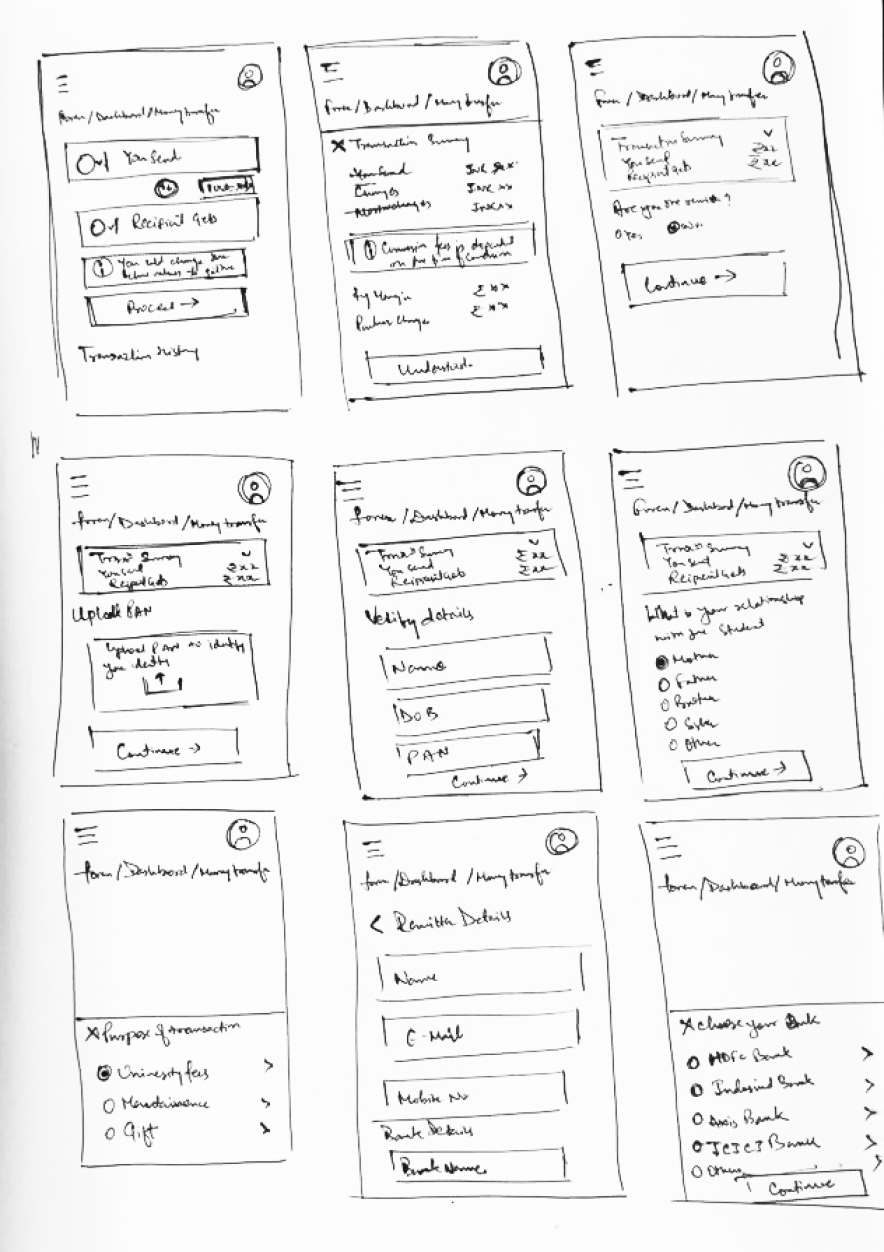 Forex/Dashboard/Money transfer
You Send
Recipient Gets
You change
Proceed →
Transaction History
Forex/Dashboard/Money transfer
X Transaction Summary
You Send INR xx
Charges INR xx
INR xx
Conversion fees is dependent
on the of
Margin ₹ xx
Partner Charges ₹ xx
Understood.
Forex/Dashboard/Money transfer
Transaction Summary
You send ₹ xx
Recipient gets ₹ xx
Are you the ?
Yes No
Continue →
Forex/Dashboard/Money transfer
Summary
You send ₹ xx
Recipient Gets ₹ xx
Upload PAN
Upload PAN to identify
you identity
Continue →
Forex/Dashboard/Money transfer
Summary
You send ₹ xx
Recipient Gets ₹ xx
Verify details
Name
DOB
PAN
Continue →
Forex/Dashboard/Money transfer
Summary
You send ₹ xx
Recipient Gets ₹ xx
What is your relationship
with the Student
Mother
Father
Brother
Other
Continue →
Forex/Dashboard/Money transfer
X Purpose of transaction
University fees >
>
Gift >
Forex/Dashboard/Money transfer
< Remitter Details
Name
E-Mail
Mobile No
Bank Details
Bank Name
Forex/Dashboard/Money transfer
X Choose your Bank
HDFC Bank >
Indusind Bank >
Axis Bank >
ICICI Bank >
Others >
Continue